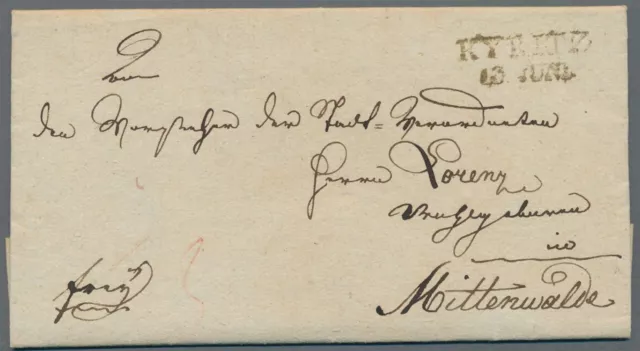 KYRITZ
13 JUNI.
An
den Vorsteher der Stadt-Verordneten
Herrn Lorenz
Wohlgeboren
in
frey
Mittenwalde